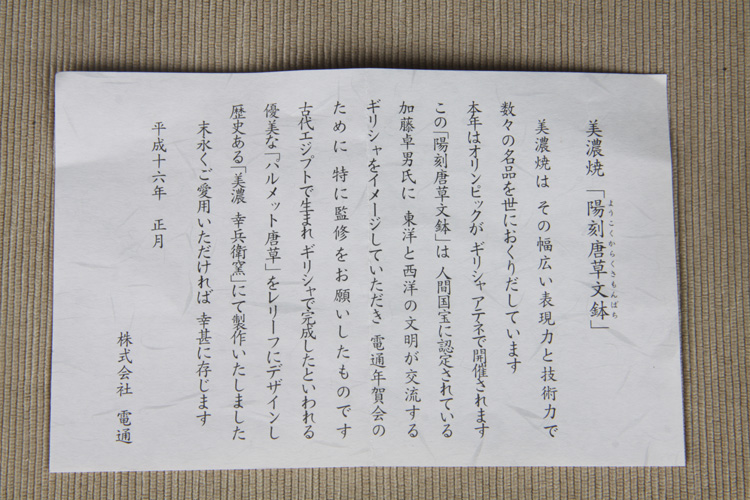 美濃焼「陽刻唐草文鉢」
ようこくからくさもんばち
美濃焼は その幅広い表現力と技術力で
数々の名品を世におくりだしています
本年はオリンピックが ギリシャ アテネで開催されます
この「陽刻唐草文鉢」は 人間国宝に認定されている
加藤卓男氏に 東洋と西洋の文明が交流する
ギリシャをイメージしていただき 電通年賀会の
ために 特に監修をお願いしたものです
古代エジプトで生まれ ギリシャで完成したといわれる
優美な「パルメット唐草」をレリーフにデザインし
歴史ある「美濃 幸兵衛窯」にて製作いたしました
末永くご愛用いただければ 幸甚に存じます
平成十六年 正月
株式会社 電通